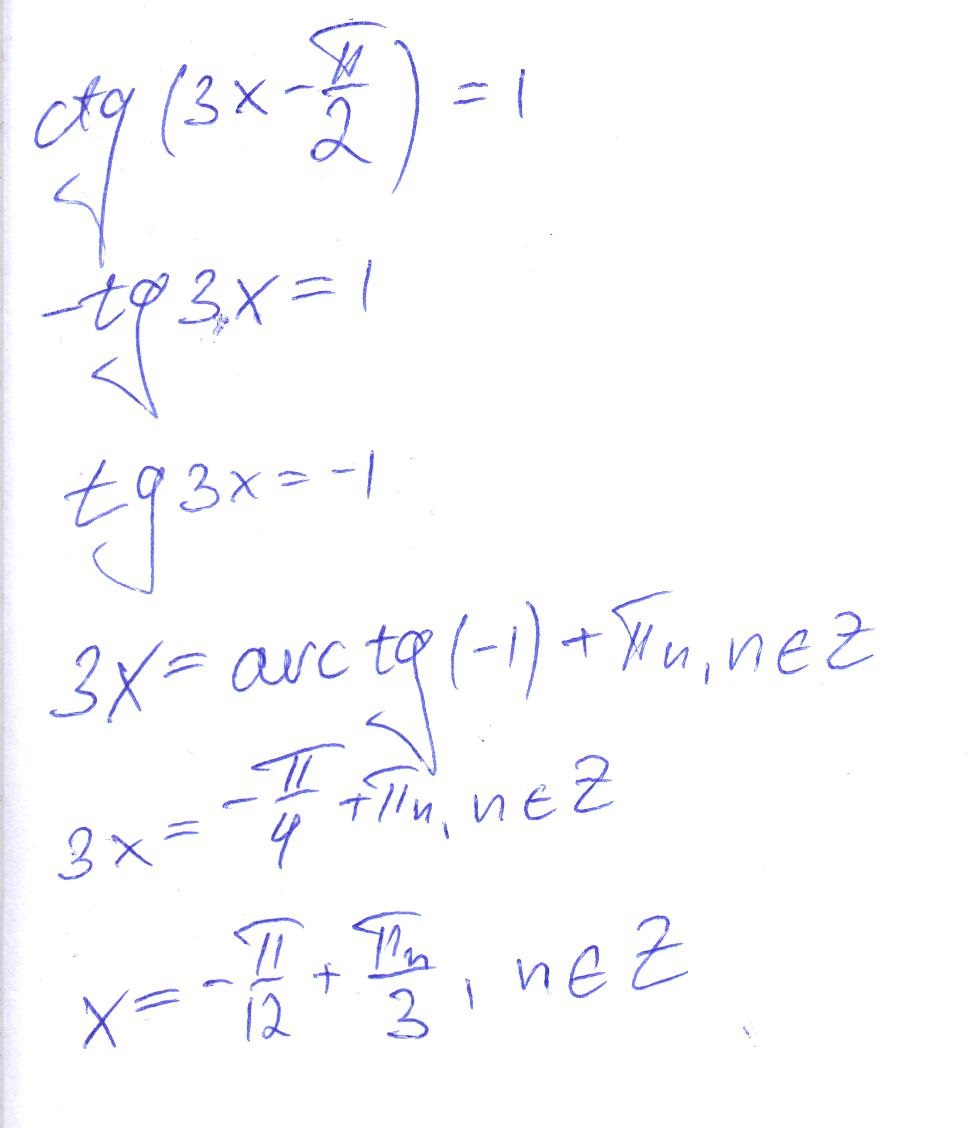 ctg(3x-π/2)=1
-tg3x=1
tg3x=-1
3x=arctg(-1)+πn, n∈Z
3x=-π/4+πn, n∈Z
x=-π/12+πn/3, n∈Z